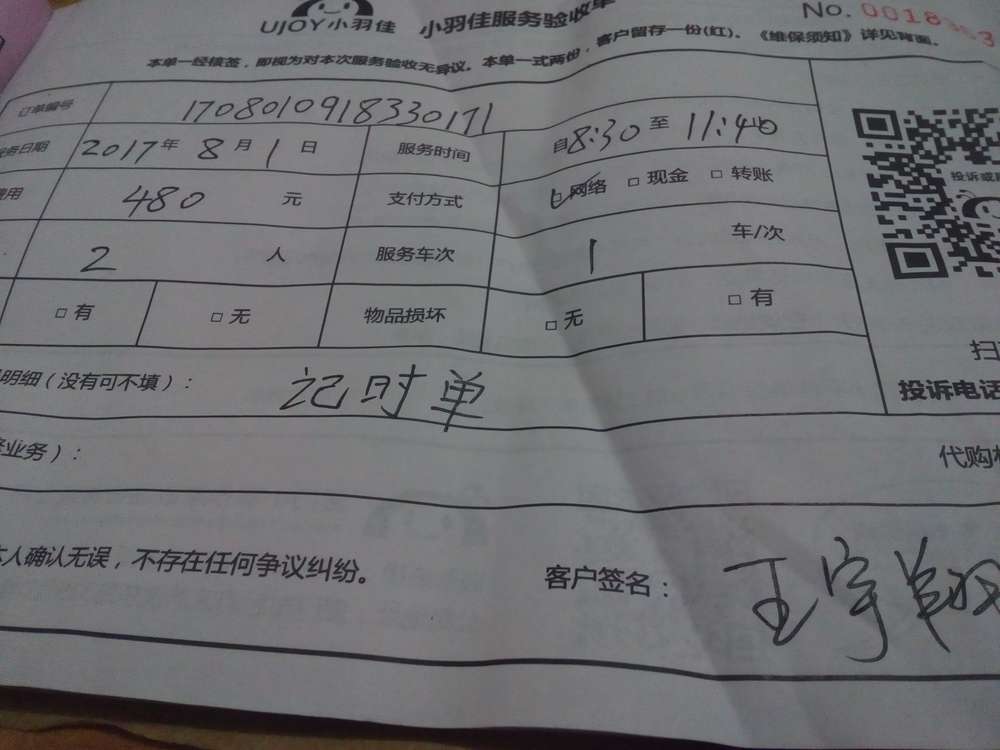 UJOY小羽佳 小羽佳服务验收单 No. 0018
本单一经核签，即视为对本次服务验收无异议。本单一式两份，客户留存一份(红)。《维保须知》详见背面。
订单编号 170801091833017 1
务日期 2017年 8月 1日 服务时间 自8:30 至 11:40
费用 480 元 支付方式 网络 □ 现金 □ 转账
2 人 服务车次 1 车/次
□ 有 □ 无 物品损坏 □ 无 □ 有
投诉或
明细（没有可不填）： 记时单
扫
投诉电话
业务）：
代购
本人确认无误，不存在任何争议纠纷。 客户签名： 王宇翔